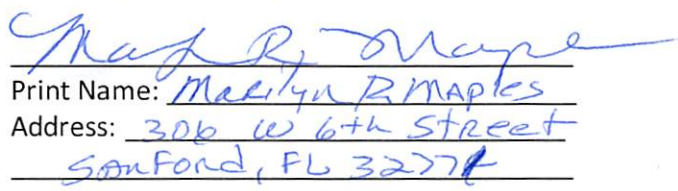 Print Name: Marilyn R. Maples
Address: 306 W 6th Street
Sanford, FL 32771